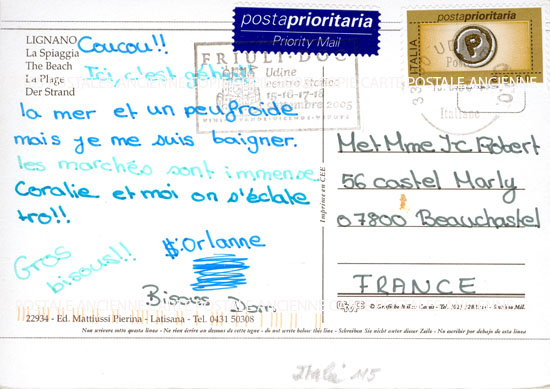 LIGNANO
La Spiaggia
The Beach
La Plage
Der Strand
Coucou!!
Ici, c'est génial
la mer et un peu froide
mais je me suis baigner.
les marchés sont immense
Coralie et moi on s'éclate
tro!!
Orlanne
Gros
bisous!!
Bisous
postaprioritaria
Priority Mail
postaprioritaria
P
ITALIA
FRIULI DOC
Udine
centro storico
15-16-17-18
settembre 2005
POSTALE ANCIENNE
M et Mme Jc Robert
56 castel Marly
07800 Beauchastel
FRANCE
Imprimé en CEE
22934 - Ed. Mattiussi Pierina - Latisana - Tel. 0431 50308
Non scrivere sotto questa linea - Ne rien écrire au dessous de cette ligne - do not write below this line - Schreiben Sie nicht unter dieser Zeile - No escribir por debajo de esta linea
Italie